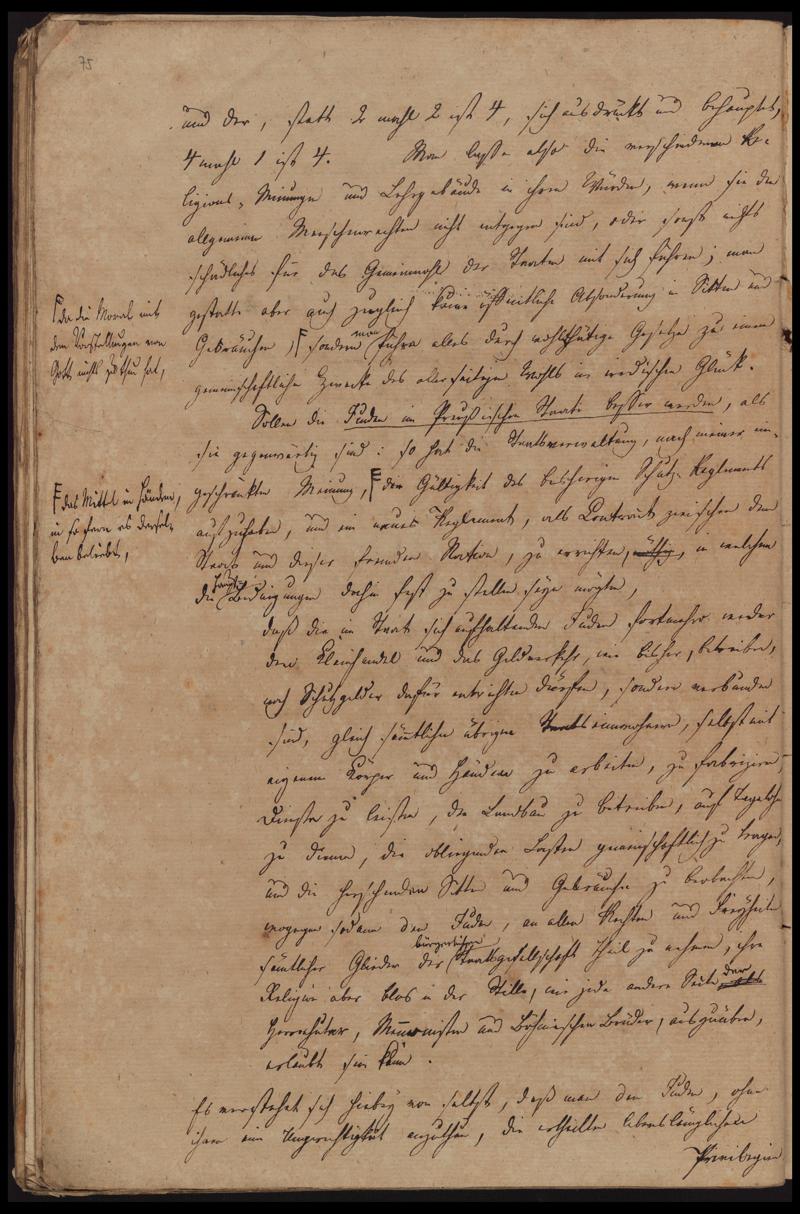 75
und der, statt 2 mahl 2 ist 4, sich ausdrückt und behauptet,
4 mahl 1 ist 4. Man lasse also die verschiedenen Re-
ligions-Meinungen und Lehrgebäude in ihren Würden, wenn sie den
allgemeinen Menschenrechten nicht entgegen sind, oder sonst nichts
schädliches für das Gemeinwohl der Staaten mit sich führen; man
gestatte aber auch zugleich keine öffentliche Absonderung in Sitten und
Gebräuchen, F sondern man führe alles durch wohlthätige Gesetze zu einem
gemeinschaftlichen Zwecke des allerseitigen Wohls im irdischen Glück.
F da die Moral mit
den Vorstellungen von
Gott nichts zu thun hat,
Sollen die Juden im Preußischen Staate besser werden, als
sie gegenwärtig sind: so hat die Staatsverwaltung, nach meiner ein-
geschränkten Meinung, F die Gültigkeit des bisherigen Schutz-Reglements
aufzuheben, und ein neues Reglement, als Contract zwischen dem
Staat und dieser fremden Nation, zu errichten, nöthig, in welchem
die Haupt-Bedingungen dahin fest zu stellen seyn mögten,
F das Mittel in Händen,
in so fern es dersel-
ben beliebt,
daß die im Staat sich aufhaltenden Juden fortmehr weder
den Kleinhandel und das Geldverkehr, wie bisher, betreiben,
noch Schutzgelder dafür entrichten dürfen, sondern verbunden
sind, gleich sämtlichen übrigen Staatseinwohnern, selbst mit
eigenem Körper und Händen zu arbeiten, zu fabriziren,
Dienste zu leisten, den Landbau zu betreiben, auf Tagelohn
zu dienen, die obliegenden Lasten gemeinschaftlich zu tragen,
und die herrschenden Sitten und Gebräuche zu beobachten,
wogegen sodann den Juden, an allen Rechten und Freyheiten
sämtlicher Glieder der bürgerlichen Staatsgesellschaft Theil zu nehmen, ihre
Religion aber blos in der Stille, wie jede andere Secte der
Herrnhuter, Mennoniten und Böhmischen Brüder, auszuüben,
erlaubt sein kann.
Es verstehet sich hiebey von selbst, daß man den Juden, ohne
ihnen eine Ungerechtigkeit anzuthun, die ertheilten lebenslänglichen
Privilegien